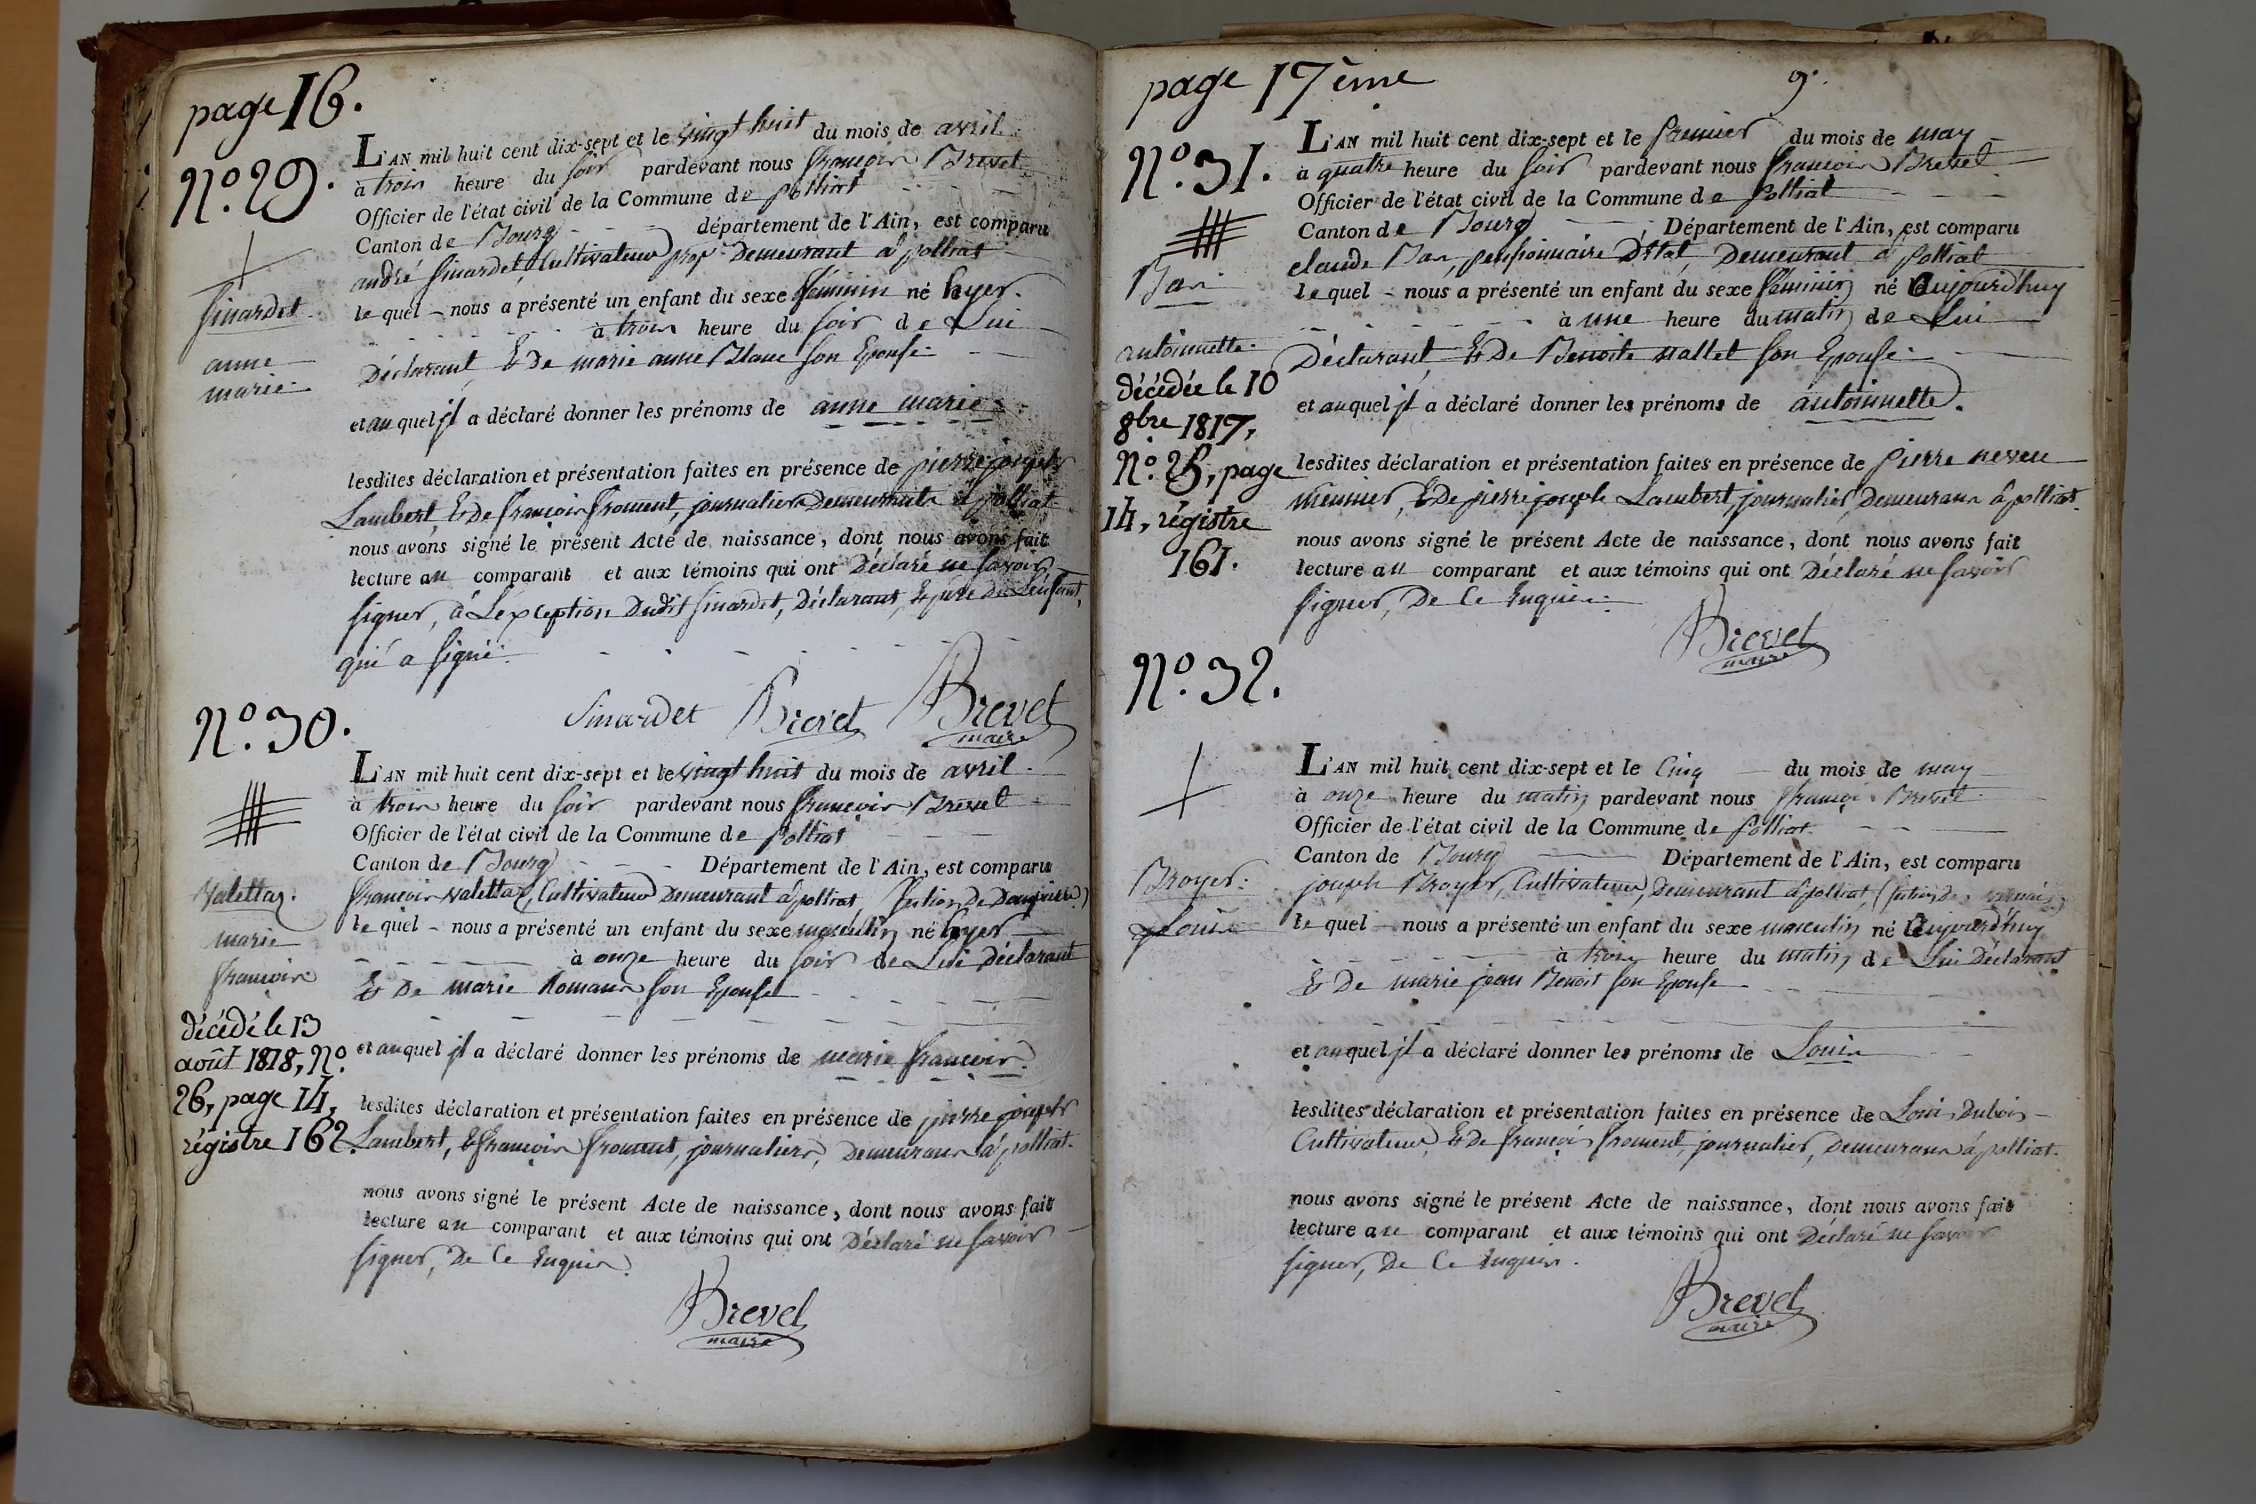 page 16.
N.º 29.
Sinardet
anne
marie.
L'AN mil huit cent dix-sept et le vingt huit du mois de avril
à trois heure du soir pardevant nous françois Brevet
Officier de l'état civil de la Commune de polliat
Canton de Bourg département de l'Ain, est comparu
andré Sinardet, Cultivateur prop.re Demeurant à polliat
le quel nous a présenté un enfant du sexe féminin né hyer
à trois heure du soir de Lui
Déclarant & De marie anne Blanc son Epouse
et au quel il a déclaré donner les prénoms de anne marie
lesdites déclaration et présentation faites en présence de pierre joseph
Lambert & de françois froment, journaliers Demeurants à polliat
nous avons signé le présent Acte de naissance, dont nous avons fait
lecture au comparant et aux témoins qui ont Déclaré ne savoir
signer, à L'exception Dudit Sinardet, Déclarant, & père de L'enfant,
qui a signé.
Sinardet Brevet Brevet
maire
N.º 30.
Valettaz.
marie
françois
décédé le 13
août 1818, N.º
26, page 14,
régistre 162.
L'AN mil huit cent dix-sept et le vingt huit du mois de avril
à trois heure du soir pardevant nous françois Brevet
Officier de l'état civil de la Commune de Polliat
Canton de Bourg Département de l'Ain, est comparu
françois valettaz, Cultivateur Demeurant à polliat,
le quel nous a présenté un enfant du sexe masculin né hyer
à onze heure du soir de Lui Déclarant
& De marie Romans son Epouse
et au quel il a déclaré donner les prénoms de marie françois
lesdites déclaration et présentation faites en présence de pierre joseph
Lambert, & françois froment, journaliers, Demeurans à polliat.
nous avons signé le présent Acte de naissance, dont nous avons fait
lecture au comparant et aux témoins qui ont Déclaré ne savoir
signer, De Ce Enquis.
Brevet
maire
page 17ème
9.
N.º 31.
Ban
antoinette.
décédée le 10
8bre 1817,
N.º 25, page
14, régistre
161.
L'AN mil huit cent dix-sept et le premier du mois de may
à quatre heure du soir pardevant nous françois Brevet
Officier de l'état civil de la Commune de Polliat
Canton de Bourg Département de l'Ain, est comparu
claude Ban, pensionnaire D'Etat, Demeurant à Polliat
le quel nous a présenté un enfant du sexe féminin né aujourd'huy
à une heure du matin de Lui
Déclarant, & De Benoite vallet son Epouse
et au quel il a déclaré donner les prénoms de antoinette.
lesdites déclaration et présentation faites en présence de pierre neveu
meunier, & De pierre joseph Lambert, journalier, Demeurans à polliat.
nous avons signé le présent Acte de naissance, dont nous avons fait
lecture au comparant et aux témoins qui ont Déclaré ne savoir
signer, De Ce Enquis.
Brevet
maire
N.º 32.
Broyer.
Louis
L'AN mil huit cent dix-sept et le Cinq du mois de may
à onze heure du matin pardevant nous françois Brevet
Officier de l'état civil de la Commune de Polliat
Canton de Bourg Département de l'Ain, est comparu
joseph Broyer, Cultivateur, Demeurant à polliat,
le quel nous a présenté un enfant du sexe masculin né aujourd'huy
à trois heure du matin de Lui Déclarant
& De marie jean Benoit son Epouse
et au quel il a déclaré donner les prénoms de Louis
lesdites déclaration et présentation faites en présence de Louis Dubois
Cultivateur, & de françois froment, journalier, Demeurans à polliat.
nous avons signé le présent Acte de naissance, dont nous avons fait
lecture au comparant et aux témoins qui ont Déclaré ne savoir
signer, De Ce Enquis.
Brevet
maire